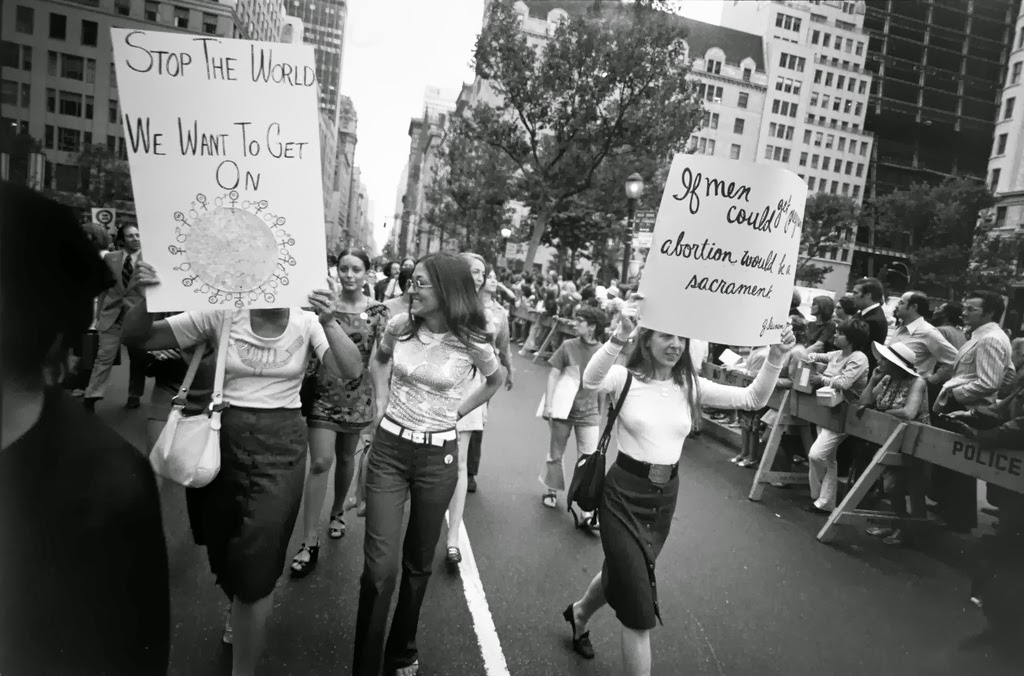 STOP THE WORLD
WE WANT TO GET
ON
If men
could get
abortion would be a
sacrament.
POLICE